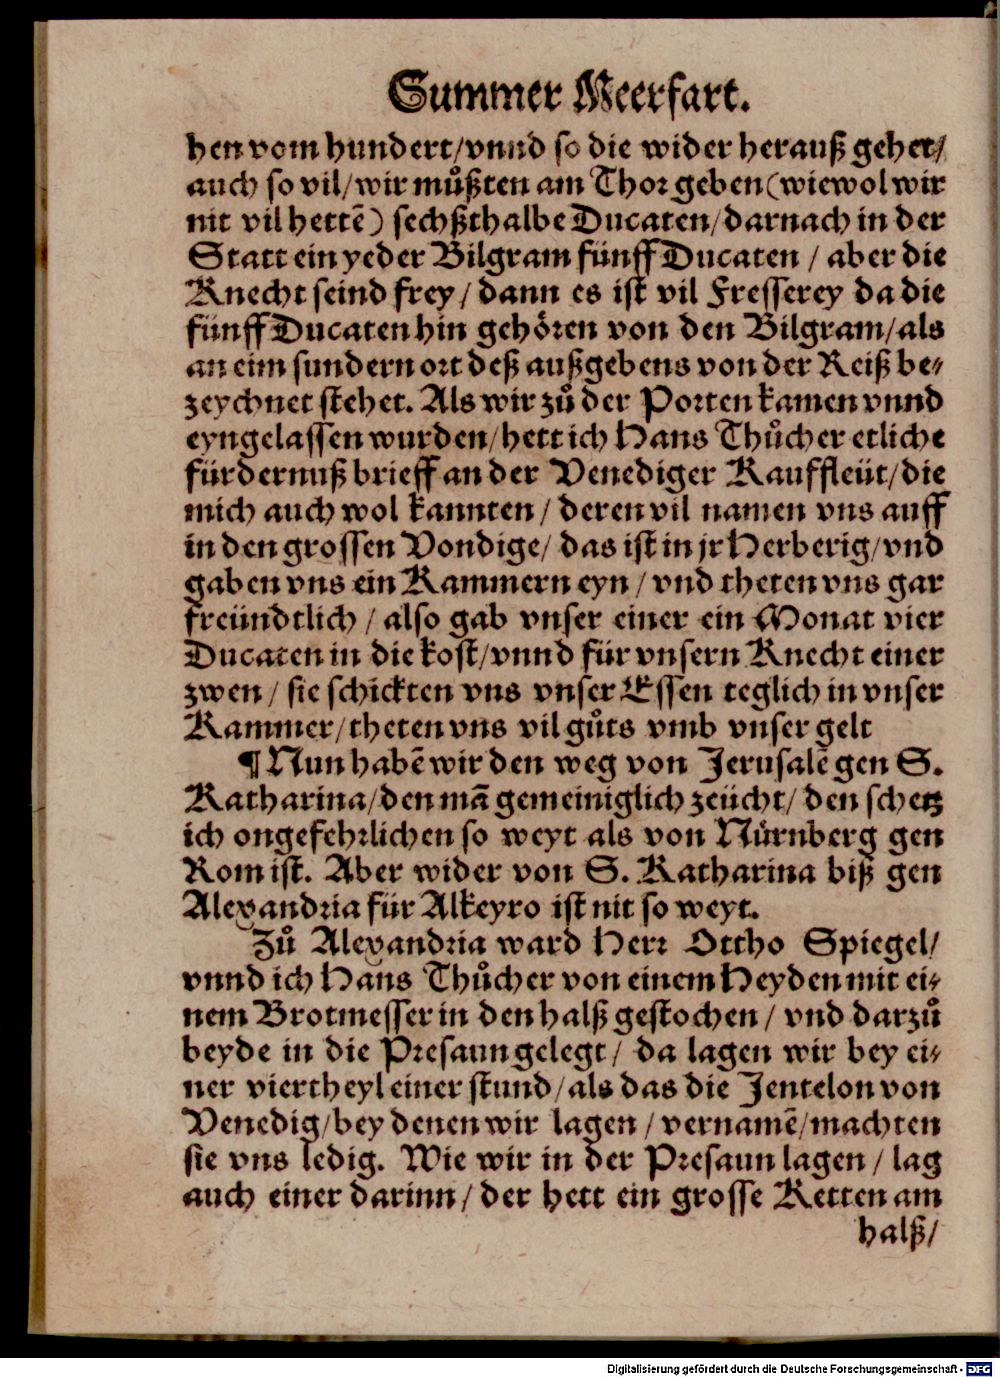 Summer Meerfart.
hen vom hundert/vnnd so die wider herauß gehet/
auch so vil/wir muͤßten am Thor geben(wiewol wir
nit vil hettẽ) sechßthalbe Ducaten/darnach in der
Statt ein yeder Bilgram fünff Ducaten / aber die
Knecht seind frey/ dann es ist vil Fresserey da die
fünff Ducaten hin gehoͤren von den Bilgram/als
an eim sundern ort deß außgebens von der Reiß be⸗
zeychnet stehet. Als wir zuͦ der Porten kamen vnnd
eyngelassen wurden/hett ich Hans Thuͦcher etliche
fürdernuß brieff an der Venediger Kauffleüt/die
mich auch wol kannten/ deren vil namen vns auff
in den grossen Vondige/ das ist in jr Herberig/vnd
gaben vns ein Kammern eyn / vnd theten vns gar
freündtlich / also gab vnser einer ein Monat vier
Ducaten in die kost/vnnd für vnsern Knecht einer
zwen / sie schickten vns vnser Essen teglich in vnser
Kammer/theten vns vil guͦts vmb vnser gelt
¶ Nun habẽ wir den weg von Jerusalẽ gen S.
Katharina/den mã gemeiniglich zeücht/ den schetz
ich ongefehrlichen so weyt als von Nürnberg gen
Rom ist. Aber wider von S. Katharina biß gen
Alexandria für Alkeyro ist nit so weyt.
Zuͦ Alexandria ward Herr Ottho Spiegel/
vnnd ich Hans Thuͦcher von einem Heyden mit ei⸗
nem Brotmesser in den halß gestochen / vnd darzuͦ
beyde in die Presaun gelegt/ da lagen wir bey ei⸗
ner viertheyl einer stund/als das die Jentelon von
Venedig/bey denen wir lagen / vernamẽ/machten
sie vns ledig. Wie wir in der Presaun lagen / lag
auch einer darinn/ der hett ein grosse Ketten am
halß/
Digitalisierung gefördert durch die Deutsche Forschungsgemeinschaft - DFG